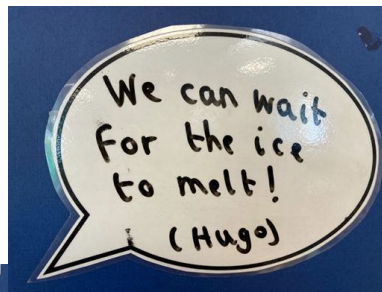 We can wait
for the ice
to melt!
(Hugo)